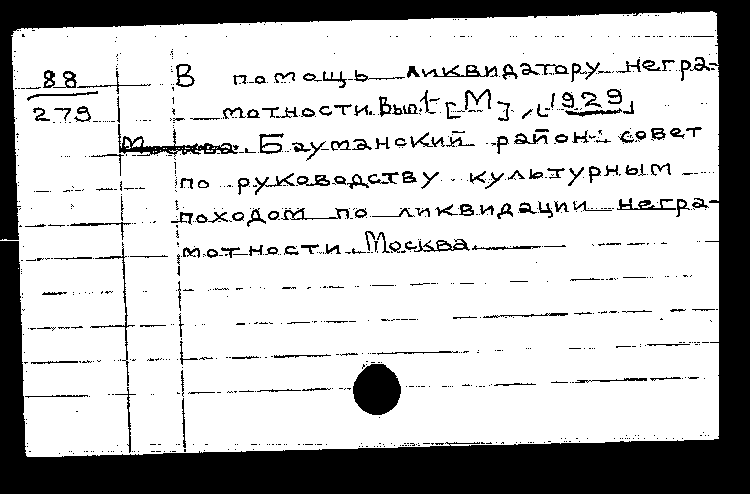 88
279
В помощь ликвидатору негра-
мотности. Вып. 1 [М], [1929]
Москва. Бауманский район. совет
по руководству культурным
походом по ликвидации негра-
мотности. Москва.